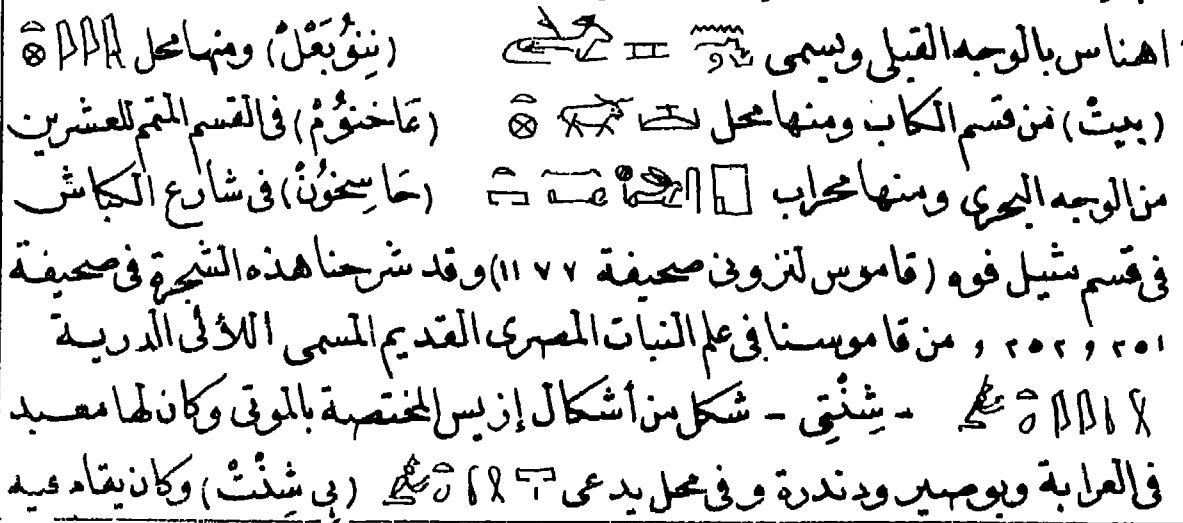 اهناس بالوجه القبلى ويسمى (نِنوُبَعْلْ) ومنها محل
(بيتْ) من قسم الكاب ومنها محل (عَاخنوُمْ) فى القسم المتمم للعشرين
من الوجه البحرى ومنها محراب (حَاسِخوُنْ) فى شارع الكباش
فى قسم مثيل فوه (قاموس لنزونى صحيفة ١١٧٧) وقد شرحنا هذه الشجرة فى صحيفة
٢٥١ و ٢٥٢ و من قاموسنا فى علم النبات المصرى القديم المسمى اللألى الدرية
- شِنْتِى - شكل من أشكال إزيس المختصة بالموتى وكان لها معبد
فى العرابة وبوصير ودندرة وفى محل يدعى (پى شِنْتْ) وكان يقام فيه